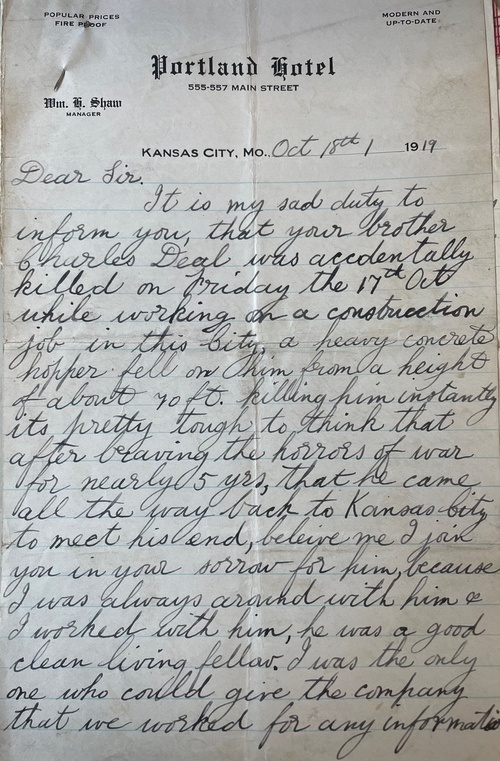 POPULAR PRICES
FIRE PROOF
MODERN AND
UP-TO-DATE
Portland Hotel
555-557 MAIN STREET
Wm. H. Shaw
MANAGER
KANSAS CITY, MO., Oct 18th 1919
Dear Sir.
It is my sad duty to
inform you, that your brother
Charles Deal was accdentally
killed on Friday the 17th Oct
while working on a construction
job in this City, a heavy concrete
hopper fell on him from a height
of about 70 ft. killing him instantly
its pretty tough to think that
after braving the horrors of war
for nearly 5 yrs, that he came
all the way back to Kansas City
to meet his end, beleive me I join
you in your sorrow for him, because
I was always around with him &
I worked with him, he was a good
clean living fellow. I was the only
one who could give the company
that we worked for any informatio